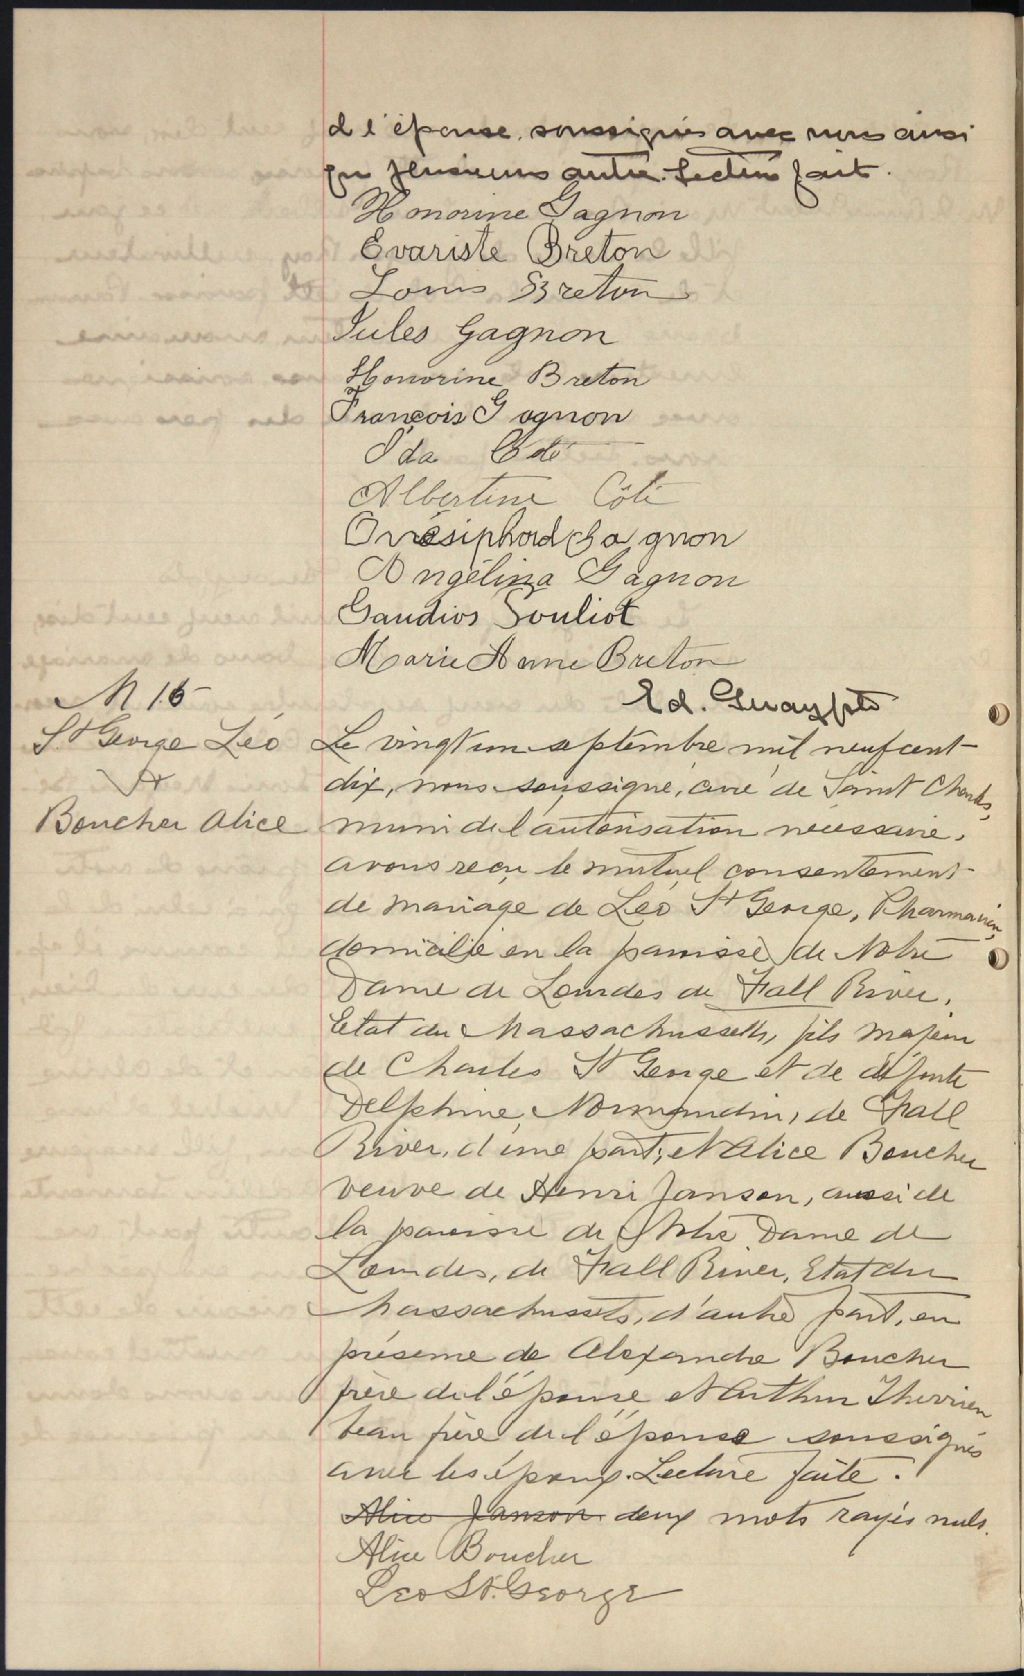 d l'épouse soussignés avec nous ainsi
que plusieurs autre. Lecture fait.
Honorine Gagnon
Evariste Breton
Louis Breton
Jules Gagnon
Honorine Breton
François Gagnon
Ida Côté
Albertine Côté
Onésiphord Gagnon
Angélina Gagnon
Gaudios Souliot
Marie Anne Breton
Ed. Guay ptre
M 15
St George Léo
&
Boucher Alice
Le vingt un septembre mil neuf cent
dix, nous soussigné, curé de Saint Charles,
muni de l'autorisation nécessaire,
avons reçu le mutuel consentement
de mariage de Léo St George, Pharmacien,
domicilié en la paroisse de Notre
Dame de Lourdes de Fall River,
Etat du Massachussetts, fils majeur
de Charles St George et de défunte
Delphine Normandin, de Fall
River, d'une part; et Alice Boucher
veuve de Henri Janson, aussi de
la paroisse de Notre Dame de
Lourdes, de Fall River, Etat du
Massachussets, d'autre part, en
présence de Alexandre Boucher
frère de l'épouse et Arthur Therrien
beau frère de l'épouse soussignés
avec les époux. Lecture faite.
Alice Janson deux mots rayés nuls.
Alice Boucher
Leo St. George